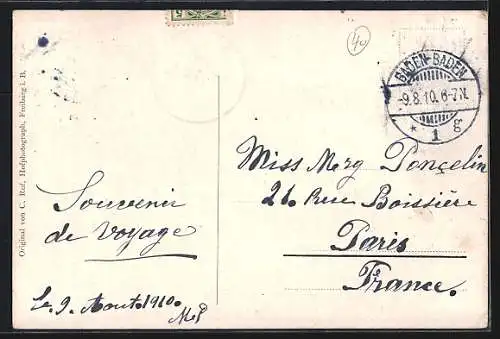 40
BADEN-BADEN
-9.8.10.6-7N.
* 1 g
Original von C. Ruf, Hofphotograph, Freiburg i. B.
Souvenir
de Voyage
Le 9. Aout 1910.
Miss Merg Ponçelin
26 Rue Boissière
Paris
France.